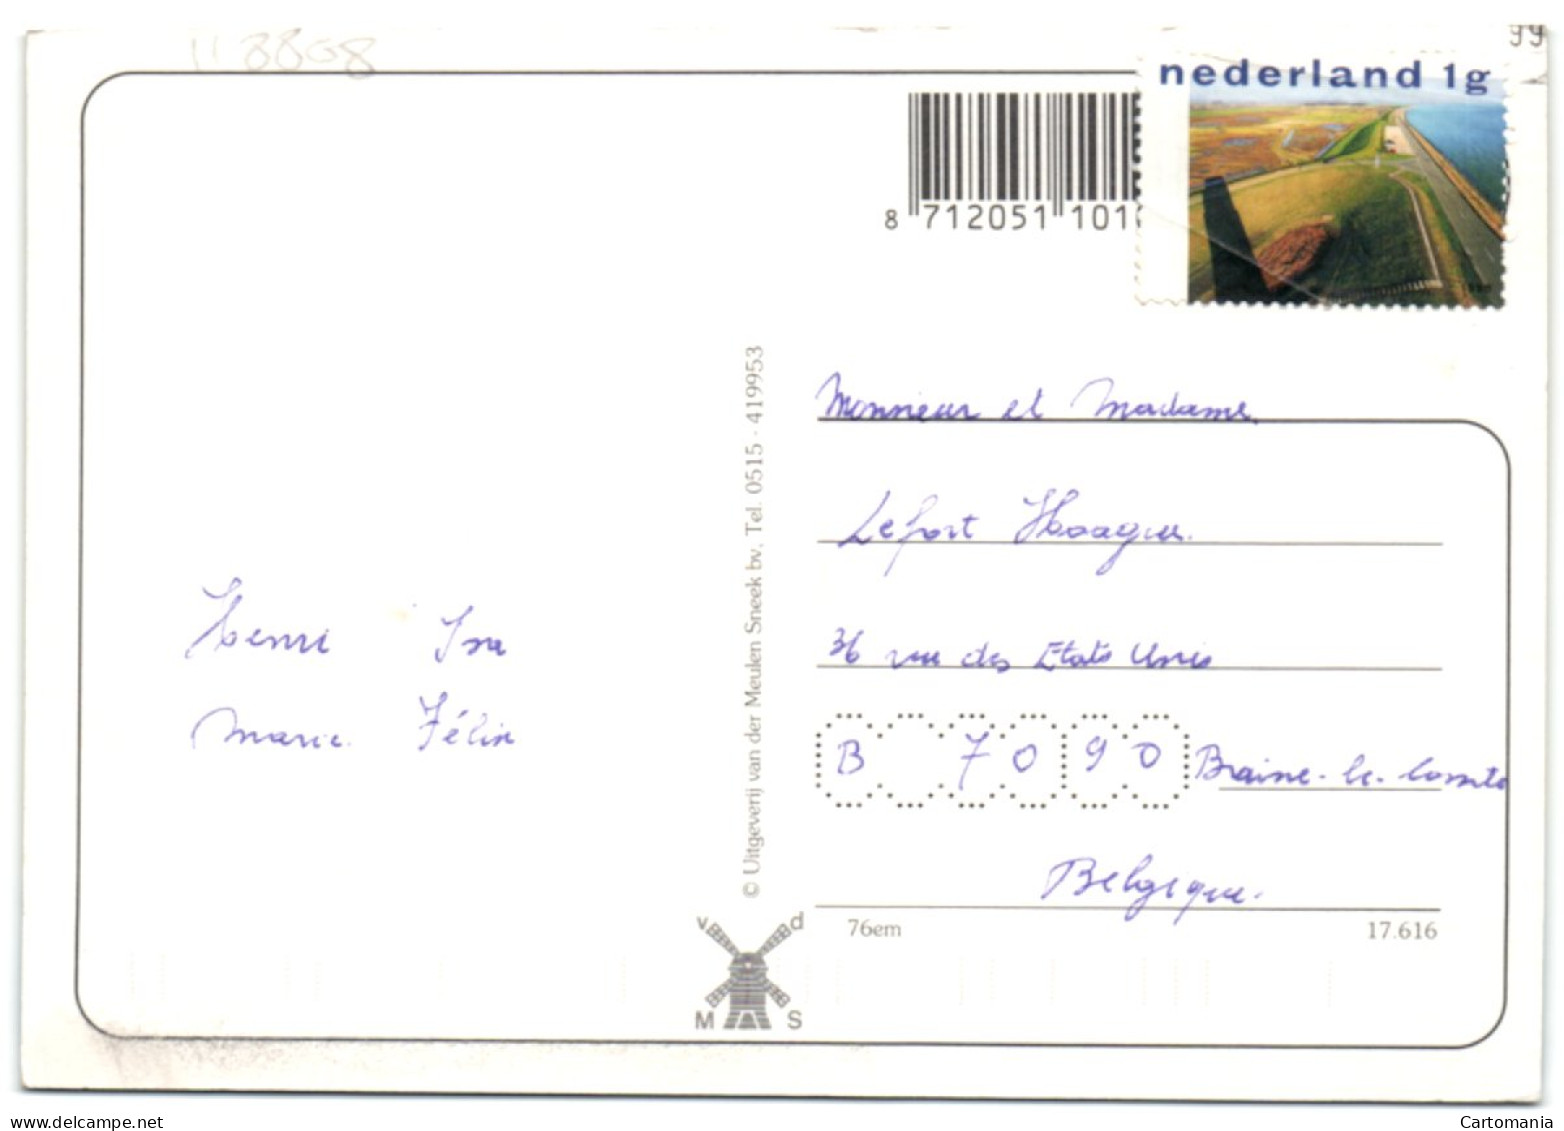 118808
99
nederland 1g
8 712051 101
Monsieur et Madame.
Lefort
36 rue des Etats Unis
B 7090 Braine-le-Comte
Belgique.
Henri Isa
Marie. Félix
© Uitgeverij van der Meulen Sneek bv, Tel. 0515 - 419953
v d
M S
76em 17.616
www.delcampe.net Cartomania